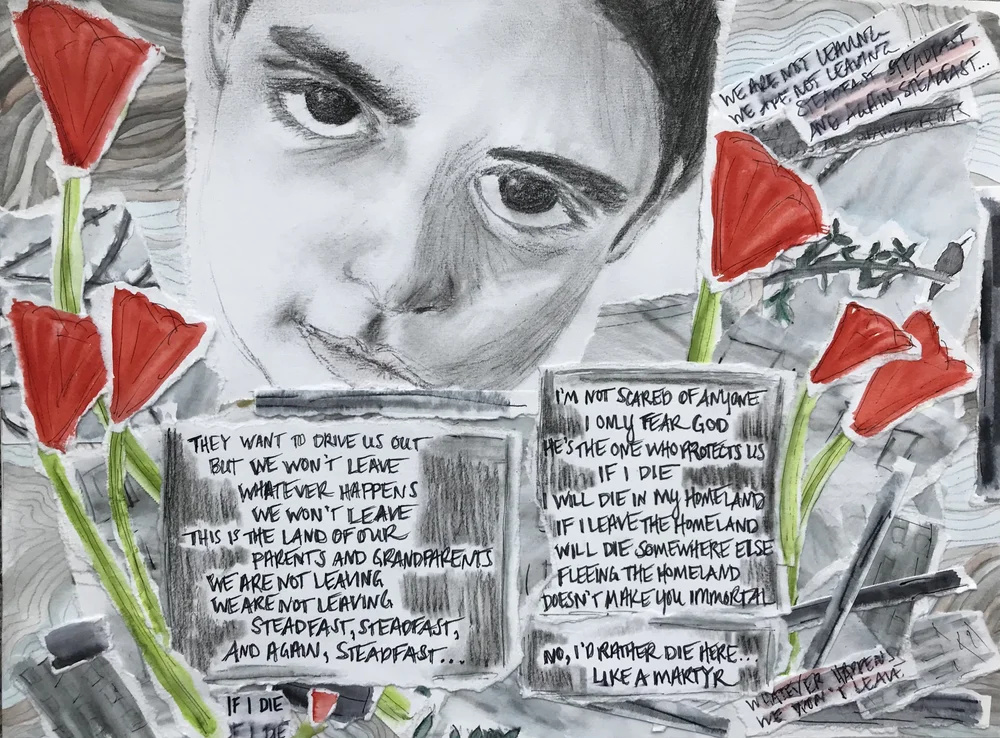 WE ARE NOT LEAVING
WE ARE NOT LEAVING....
STEADFAST, STEADFAST,
AND AGAIN, STEADFAST...
THEY WANT TO DRIVE US OUT
BUT WE WON'T LEAVE
WHATEVER HAPPENS
WE WON'T LEAVE
THIS IS THE LAND OF OUR
PARENTS AND GRANDPARENTS
WE ARE NOT LEAVING
WE ARE NOT LEAVING
STEADFAST, STEADFAST,
AND AGAIN, STEADFAST...
I'M NOT SCARED OF ANYONE
I ONLY FEAR GOD
HE'S THE ONE WHO PROTECTS US
IF I DIE
I WILL DIE IN MY HOMELAND
IF I LEAVE THE HOMELAND
WILL DIE SOMEWHERE ELSE
FLEEING THE HOMELAND
DOESN'T MAKE YOU IMMORTAL
NO, I'D RATHER DIE HERE...
LIKE A MARTYR
WHATEVER HAPPENS
WE WON'T LEAVE
IF I DIE
IF I DIE